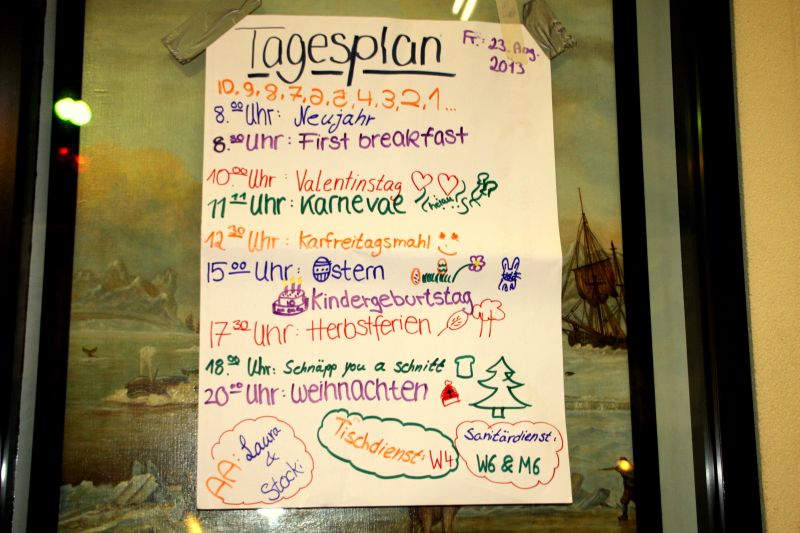 Tagesplan
Fr.: 23. Aug. 2013
10, 9, 8, 7, 6, 5, 4, 3, 2, 1 ...
8.00 Uhr: Neujahr
8.30 Uhr: First breakfast
10.00 Uhr: Valentinstag
11 11 Uhr: Karneval helau
12 30 Uhr: Karfreitagsmahl
15 00 Uhr: Ostern
Kindergeburtstag
17 30 Uhr: Herbstferien
18.00 Uhr: Schnäpp you a schnitt
20 00 Uhr: Weihnachten
AA: Laura & Stocki
Tischdienst: W4
Sanitärdienst: W6 & M6